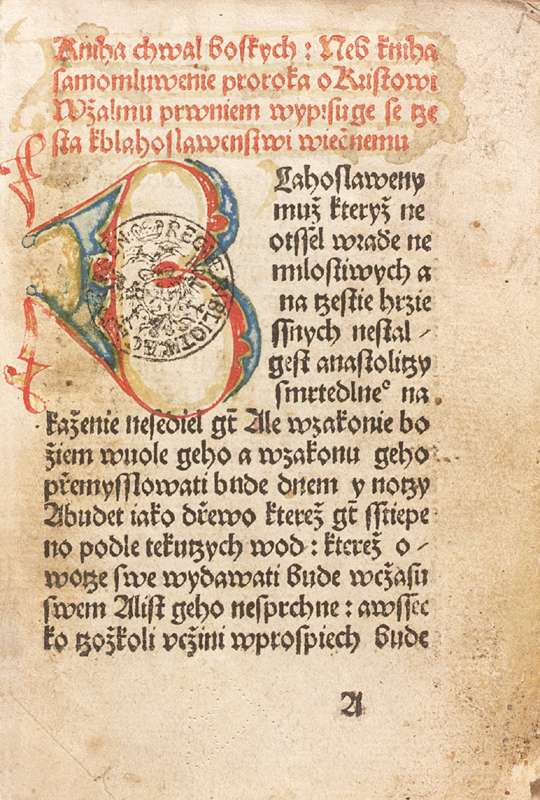 Kniha chwal boskych : Neb kniha
samomluwenie proroka o Kristowi
Wzalmu prwniem wypisuge se tze
sta kblahoslawenstwi wiečnemu
B
Lahoslaweny
muž kteryž ne
otssěl wrade ne
milostiwych a
na tzestie hrzie
ssnych nestal ⸗
gest anastolitzy
smrtedlneᵒ na
kaženie nesědiel gt̄ Ale wzakonie bo
žiem wuole geho a wzakonu geho
přemysslowati bude dnem y notzy
Abudet iako dřewo kterež gt̄ sstiepe
no podle tekutzych wod : kterež o ⸗
wotze swe wydawati bude wčžasu
swem Alist geho nesprchne : awssec
ko tzožkoli včžini wprospiech bude
A